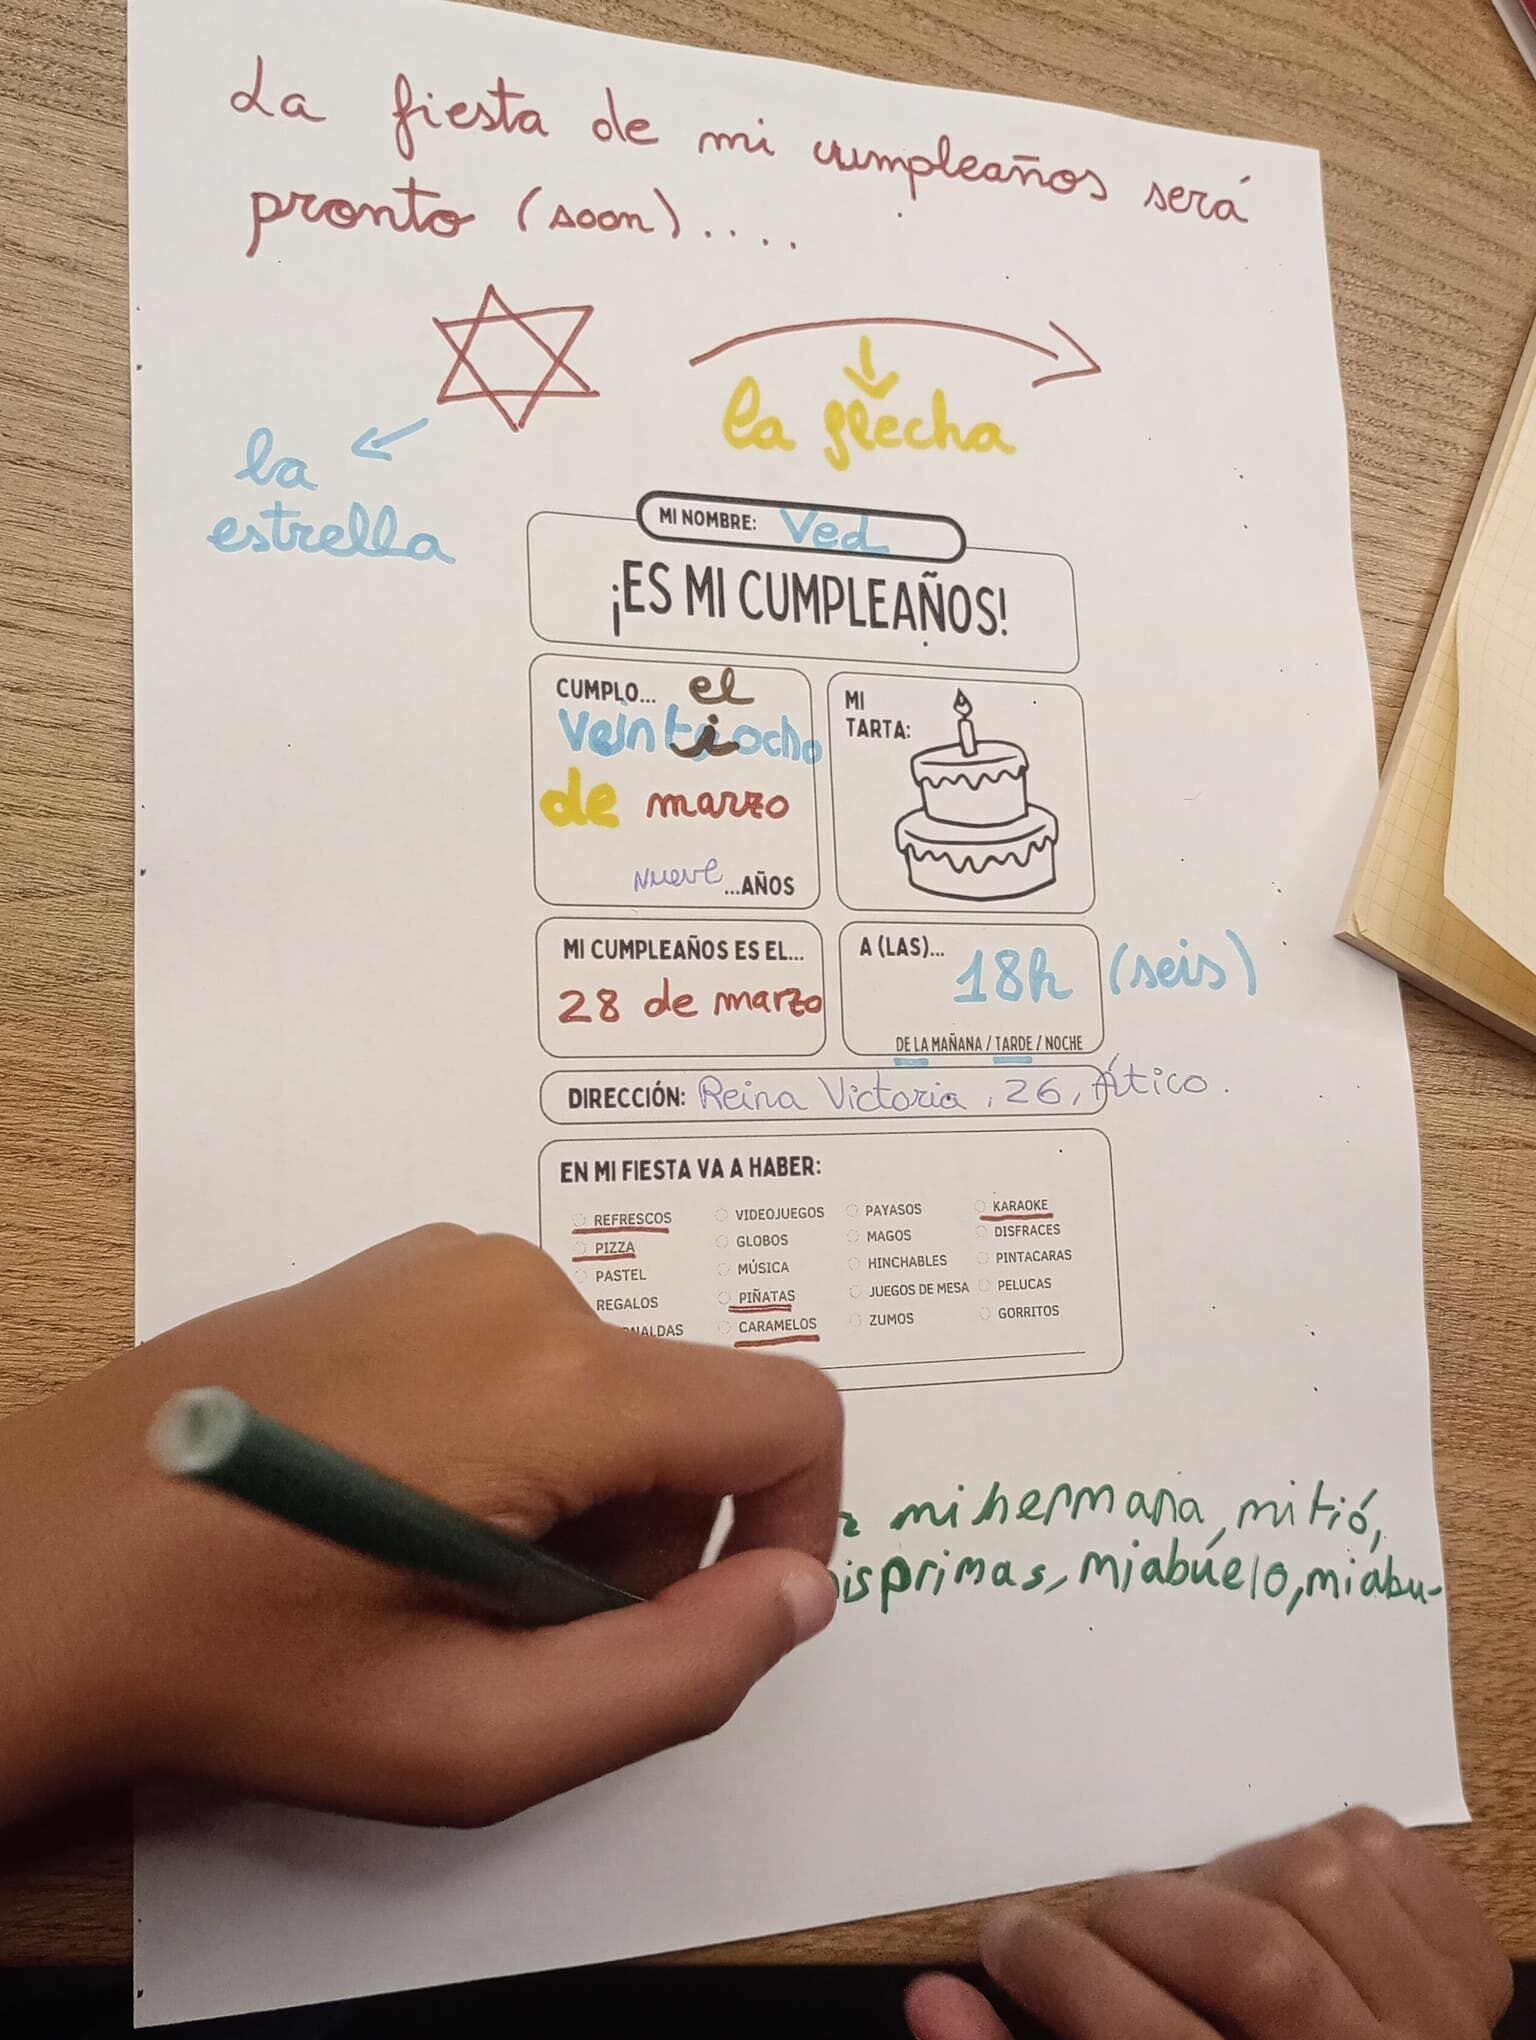 La fiesta de mi cumpleaños será
pronto (soon)....
la flecha
la
estrella
MI NOMBRE: Ved
¡ES MI CUMPLEAÑOS!
CUMPLO... el
veintiocho
de marzo
nueve ...AÑOS
MI
TARTA:
MI CUMPLEAÑOS ES EL...
28 de marzo
A (LAS)...
18h (seis)
DE LA MAÑANA / TARDE / NOCHE
DIRECCIÓN: Reina Victoria, 26, Ático.
EN MI FIESTA VA A HABER:
REFRESCOS VIDEOJUEGOS PAYASOS KARAOKE
PIZZA GLOBOS MAGOS DISFRACES
PASTEL MÚSICA HINCHABLES PINTACARAS
REGALOS PIÑATAS JUEGOS DE MESA PELUCAS
CARAMELOS ZUMOS GORRITOS
mi hermana, mi tió,
primas, mi abúelo, mi abu-